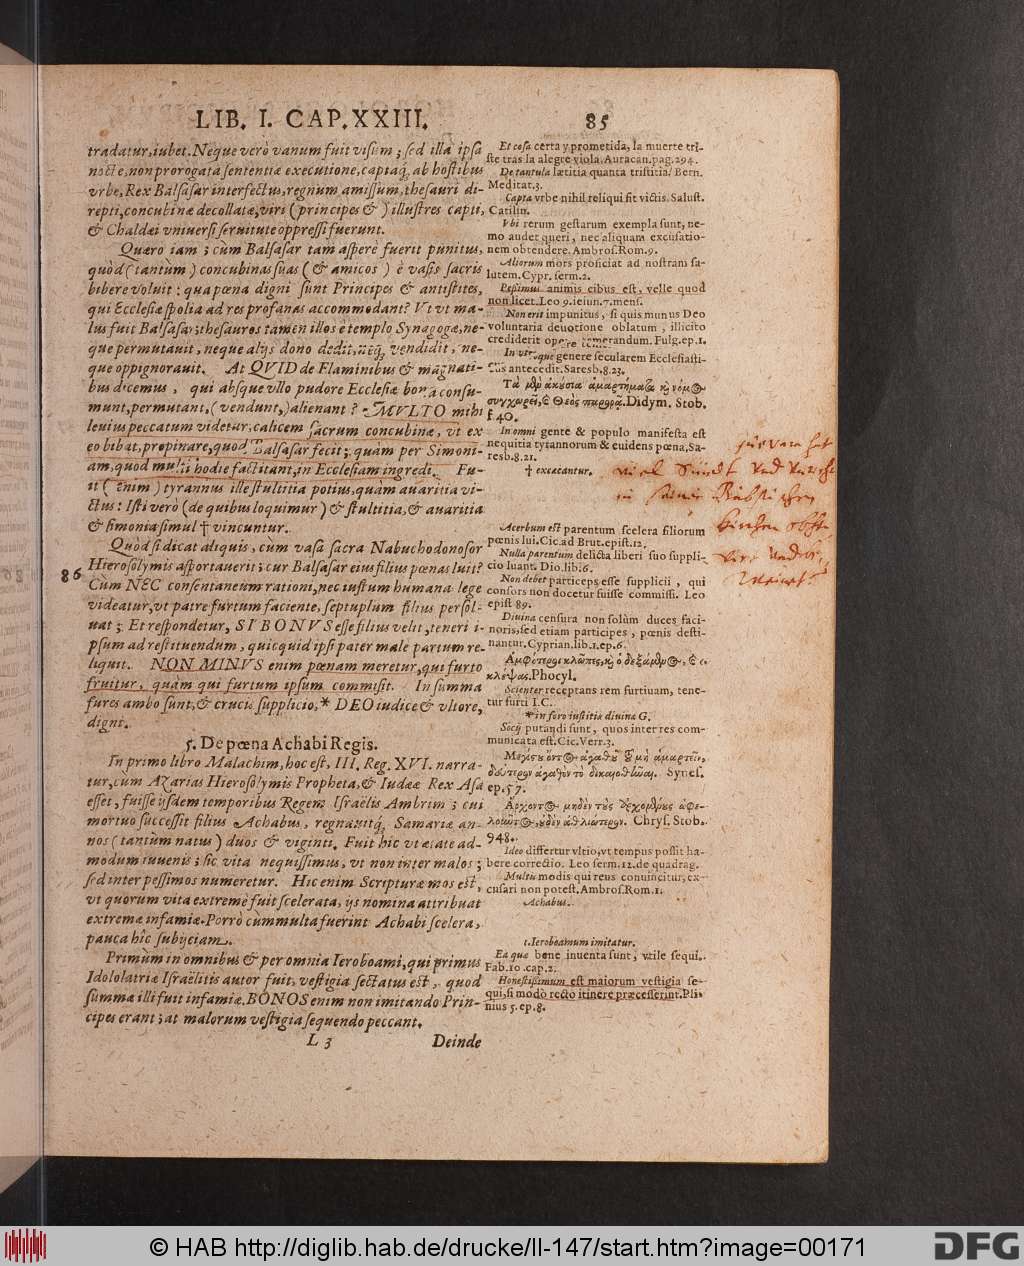 LIB. I. CAP. XXIII. 85
tradatur, iubet. Neque verò vanum fuit visum; sed illa ipsa
nocte, non prorogata sententiæ executione, captaq́, ab hostibus
vrbe, Rex Balsasar interfectus, regnum amissum, thesauri di-
repti, concubinæ decollatæ, viri (principes &) illustres capti,
& Chaldæi vniuersi seruitute oppressi fuerunt.
Quæro iam; cùm Balsasar tam asperè fuerit punitus,
quòd (tantùm) concubinas suas (& amicos) è vasis sacris
bibere voluit: qua pœna digni sunt Principes & antistites,
qui Ecclesiæ spolia ad res profanas accommodant? Vt vt ma-
lus fuit Balsasar; thesauros tamen illos è templo Synagogæ, ne-
que permutauit, neque alijs dono dedit, neq́, vendidit, ne-
que oppignorauit. At QVID de Flaminibus & magnati-
bus dicemus, qui absque vllo pudore Ecclesiæ bona consu-
munt, permutant, (vendunt,) alienant? MVLTO mihi
leuius peccatum videtur, calicem sacrum concubinæ, vt ex
eo bibat, propinare, quod Balsasar fecit; quàm per Simoni-
am, quod multi hodie factitant, in Ecclesiam ingredi. Fu-
it (enim) tyrannus ille stultitia potius, quàm auaritia vi-
ctus: Isti verò (de quibus loquimur) & stultitia, & auaritia
& simonia simul † vincuntur.
Quòd si dicat aliquis, cùm vasa sacra Nabuchodonosor
86 Hierosolymis asportauerit; cur Balsasar eius filius pœnas luit?
Cùm NEC consentaneum rationi, nec iustum humana lege
videatur, vt patre furtum faciente, septuplum filius persol-
uat; Et respondetur, SI BONVS esse filius velit, teneri i-
psum ad restituendum, quicquid ipsi pater malè partum re-
liquit. NON MINVS enim pœnam meretur, qui furto
fruitur, quàm qui furtum ipsum commisit. In summa
fures ambo sunt, & crucis supplicio, * DEO iudice & vltore,
digni.
5. De pœna Achabi Regis.
In primo libro Malachim, hoc est, III. Reg. XVI. narra-
tur, cùm Azarias Hierosolymis Propheta, & Iudææ Rex Asa
esset, fuisse ijsdem temporibus Regem Israëlis Ambrim; cui
mortuo successit filius Achabus, regnauitq́, Samariæ an-
nos (tantùm natus) duos & viginti. Fuit hic vt ætate ad-
modum iuuenis; sic vita nequissimus, vt non inter malos;
sed inter pessimos numeretur. Hic enim Scripturæ mos est,
vt quorum vita extremè fuit scelerata, ijs nomina attribuat
extremæ infamiæ. Porrò cùm multa fuerint Achabi scelera,
pauca hîc subijciam.
Primùm in omnibus & per omnia Ieroboami, qui primus
Idololatriæ Israëlitis autor fuit, vestigia sectatus est, quod
summæ illi fuit infamiæ. BONOS enim non imitando Prin-
cipes erant; at malorum vestigia sequendo peccant.
L 3 Deinde
Et cosa certa y prometida, la muerte tri-
ste tras la alegre viola. Auracan. pag. 294.
De tantula lætitia quanta tristitia! Bern.
Meditat. 3.
Capta vrbe nihil reliqui fit victis. Salust.
Catilin.
Vbi rerum gestarum exempla sunt, ne-
mo audet queri, nec aliquam excusatio-
nem obtendere. Ambros. Rom. 9.
Aliorum mors proficiat ad nostram sa-
lutem. Cypr. serm. 2.
Pessimus animis cibus est, velle quod
non licet. Leo 9. ieiun. 7. mens.
Non erit impunitus, si quis munus Deo
voluntaria deuotione oblatum, illicito
crediderit opere temerandum. Fulg. ep. 1.
In vtroque genere secularem Ecclesiasti-
cus antecedit. Saresb. 8. 23.
Didym. Stob.
f 40.
In omni gente & populo manifesta est
nequitia tyrannorum & euidens pœna, Sa-
resb. 8. 21.
† excæcantur.
Acerbum est parentum scelera filiorum
pœnis lui. Cic. ad Brut. epist. 12.
Nulla parentum delicta liberi suo suppli-
cio luant. Dio. lib. 6.
Non debet particeps esse supplicii, qui
consors non docetur fuisse commissi. Leo
epist 89.
Diuina censura non solùm duces faci-
noris, sed etiam participes, pœnis desti-
nantur. Cyprian. lib. 1. ep. 6.
Phocyl.
Scienter receptans rem furtiuam, tene-
tur furti I.C.
* in foro iustitiæ diuinæ G.
Socij putandi sunt, quos inter res com-
municata est. Cic. Verr. 3.
Synes.
ep. 57.
Chrys. Stob.
948.
Ideo differtur vltio, vt tempus possit ha-
bere correctio. Leo serm. 11. de quadrag.
Multis modis qui reus conuincitur, ex-
cusari non potest. Ambros. Rom. 1.
Achabus.
1. Ieroboamum imitatur.
Ea quæ bene inuenta sunt, vtile sequi.
Fab. 10. cap. 2.
Honestissimum est maiorum vestigia se-
qui, si modò recto itinere præcesserint. Pli-
nius 5. ep. 8.
© HAB http://diglib.hab.de/drucke/ll-147/start.htm?image=00171
DFG